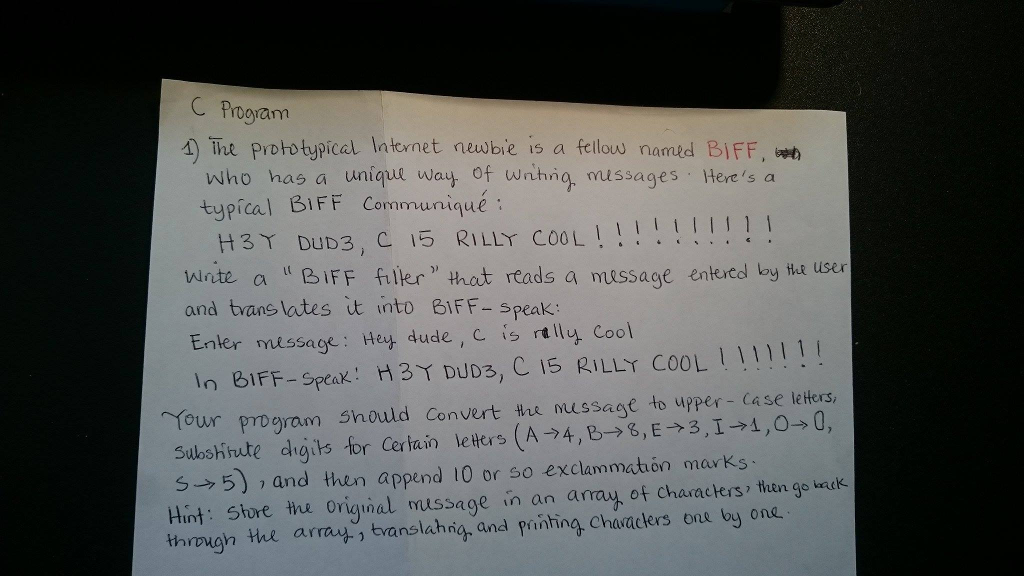 C Program
1) The prototypical Internet newbie is a fellow named BIFF,
who has a unique way of writing messages. Here's a
typical BIFF Communiqué:
H3Y DUD3, C 15 RILLY COOL!!!!!!!!!!
Write a "BIFF filter" that reads a message entered by the user
and translates it into BIFF-speak:
Enter message: Hey dude, C is rilly cool
In BIFF-Speak: H3Y DUD3, C 15 RILLY COOL !!!!!!!
Your program should convert the message to upper-case letters,
substitute digits for certain letters (A→4, B→8, E→3, I→1, O→0,
S→5), and then append 10 or so exclammation marks.
Hint: Store the original message in an array of characters, then go back
through the array, translating and printing characters one by one.